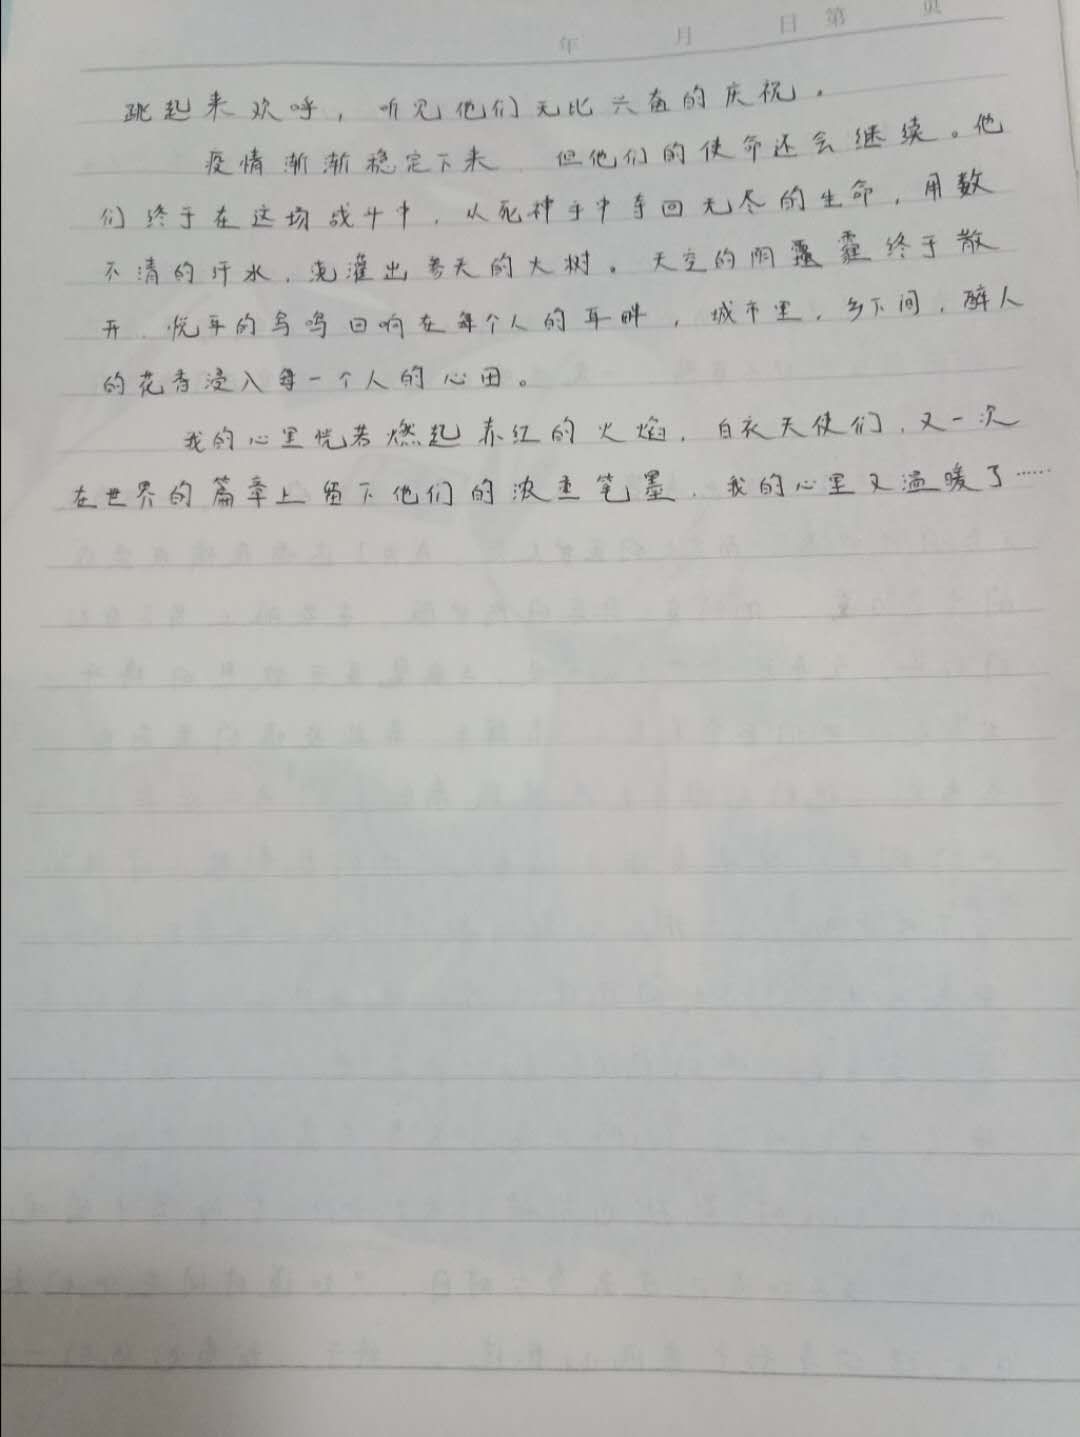 年 月 日 第 页
跳起来欢呼，听见他们无比兴奋的庆祝。
疫情渐渐稳定下来，但他们的使命还会继续。他
们终于在这场战斗中，从死神手中夺回无尽的生命，用数
不清的汗水，浇灌出参天的大树。天空的阴霾终于散
开，悦耳的鸟鸣回响在每个人的耳畔，城市里，乡下间，醉人
的花香浸入每一个人的心田。
我的心里恍若燃起赤红的火焰，白衣天使们，又一次
在世界的篇章上留下他们的浓重笔墨，我的心里又温暖了……